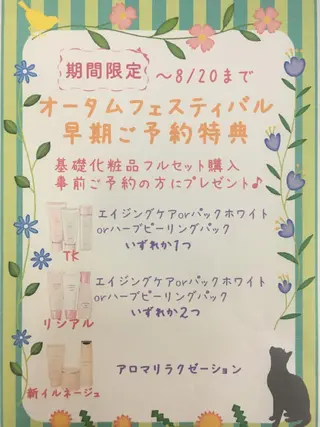 期間限定 ~8/20まで
オータムフェスティバル
早期ご予約特典
基礎化粧品フルセット購入
事前ご予約の方にプレゼント♪
エイジングケアorパックホワイト
orハーブピーリングパック
いずれか1つ
TK
エイジングケアorパックホワイト
orハーブピーリングパック
いずれか2つ
リシアル
アロマリラクゼーション
新イルネージュ